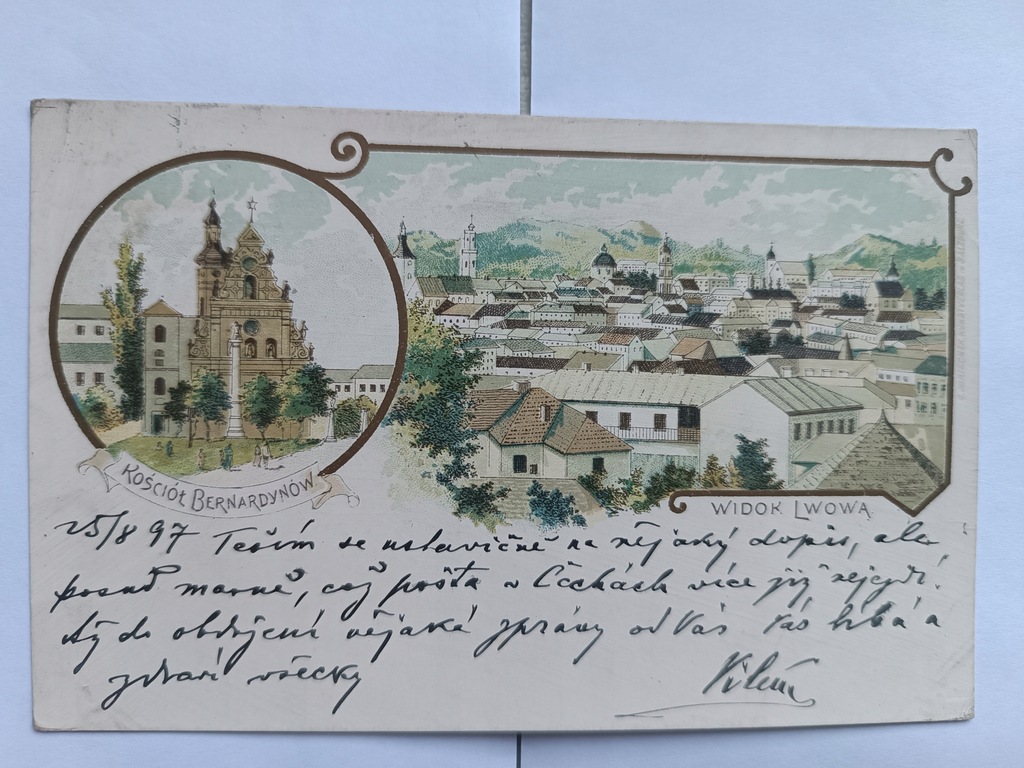 KOŚCIÓŁ BERNARDYNÓW
WIDOK LWOWA
25/8 97 Těším se ustavičně na nějaký dopis, ale
posud marně, což pošta v Čechách více již nejezdí?
Až do obdržení nějaké zprávy od Vás Vás líbá a
zdraví všecky
Vilém